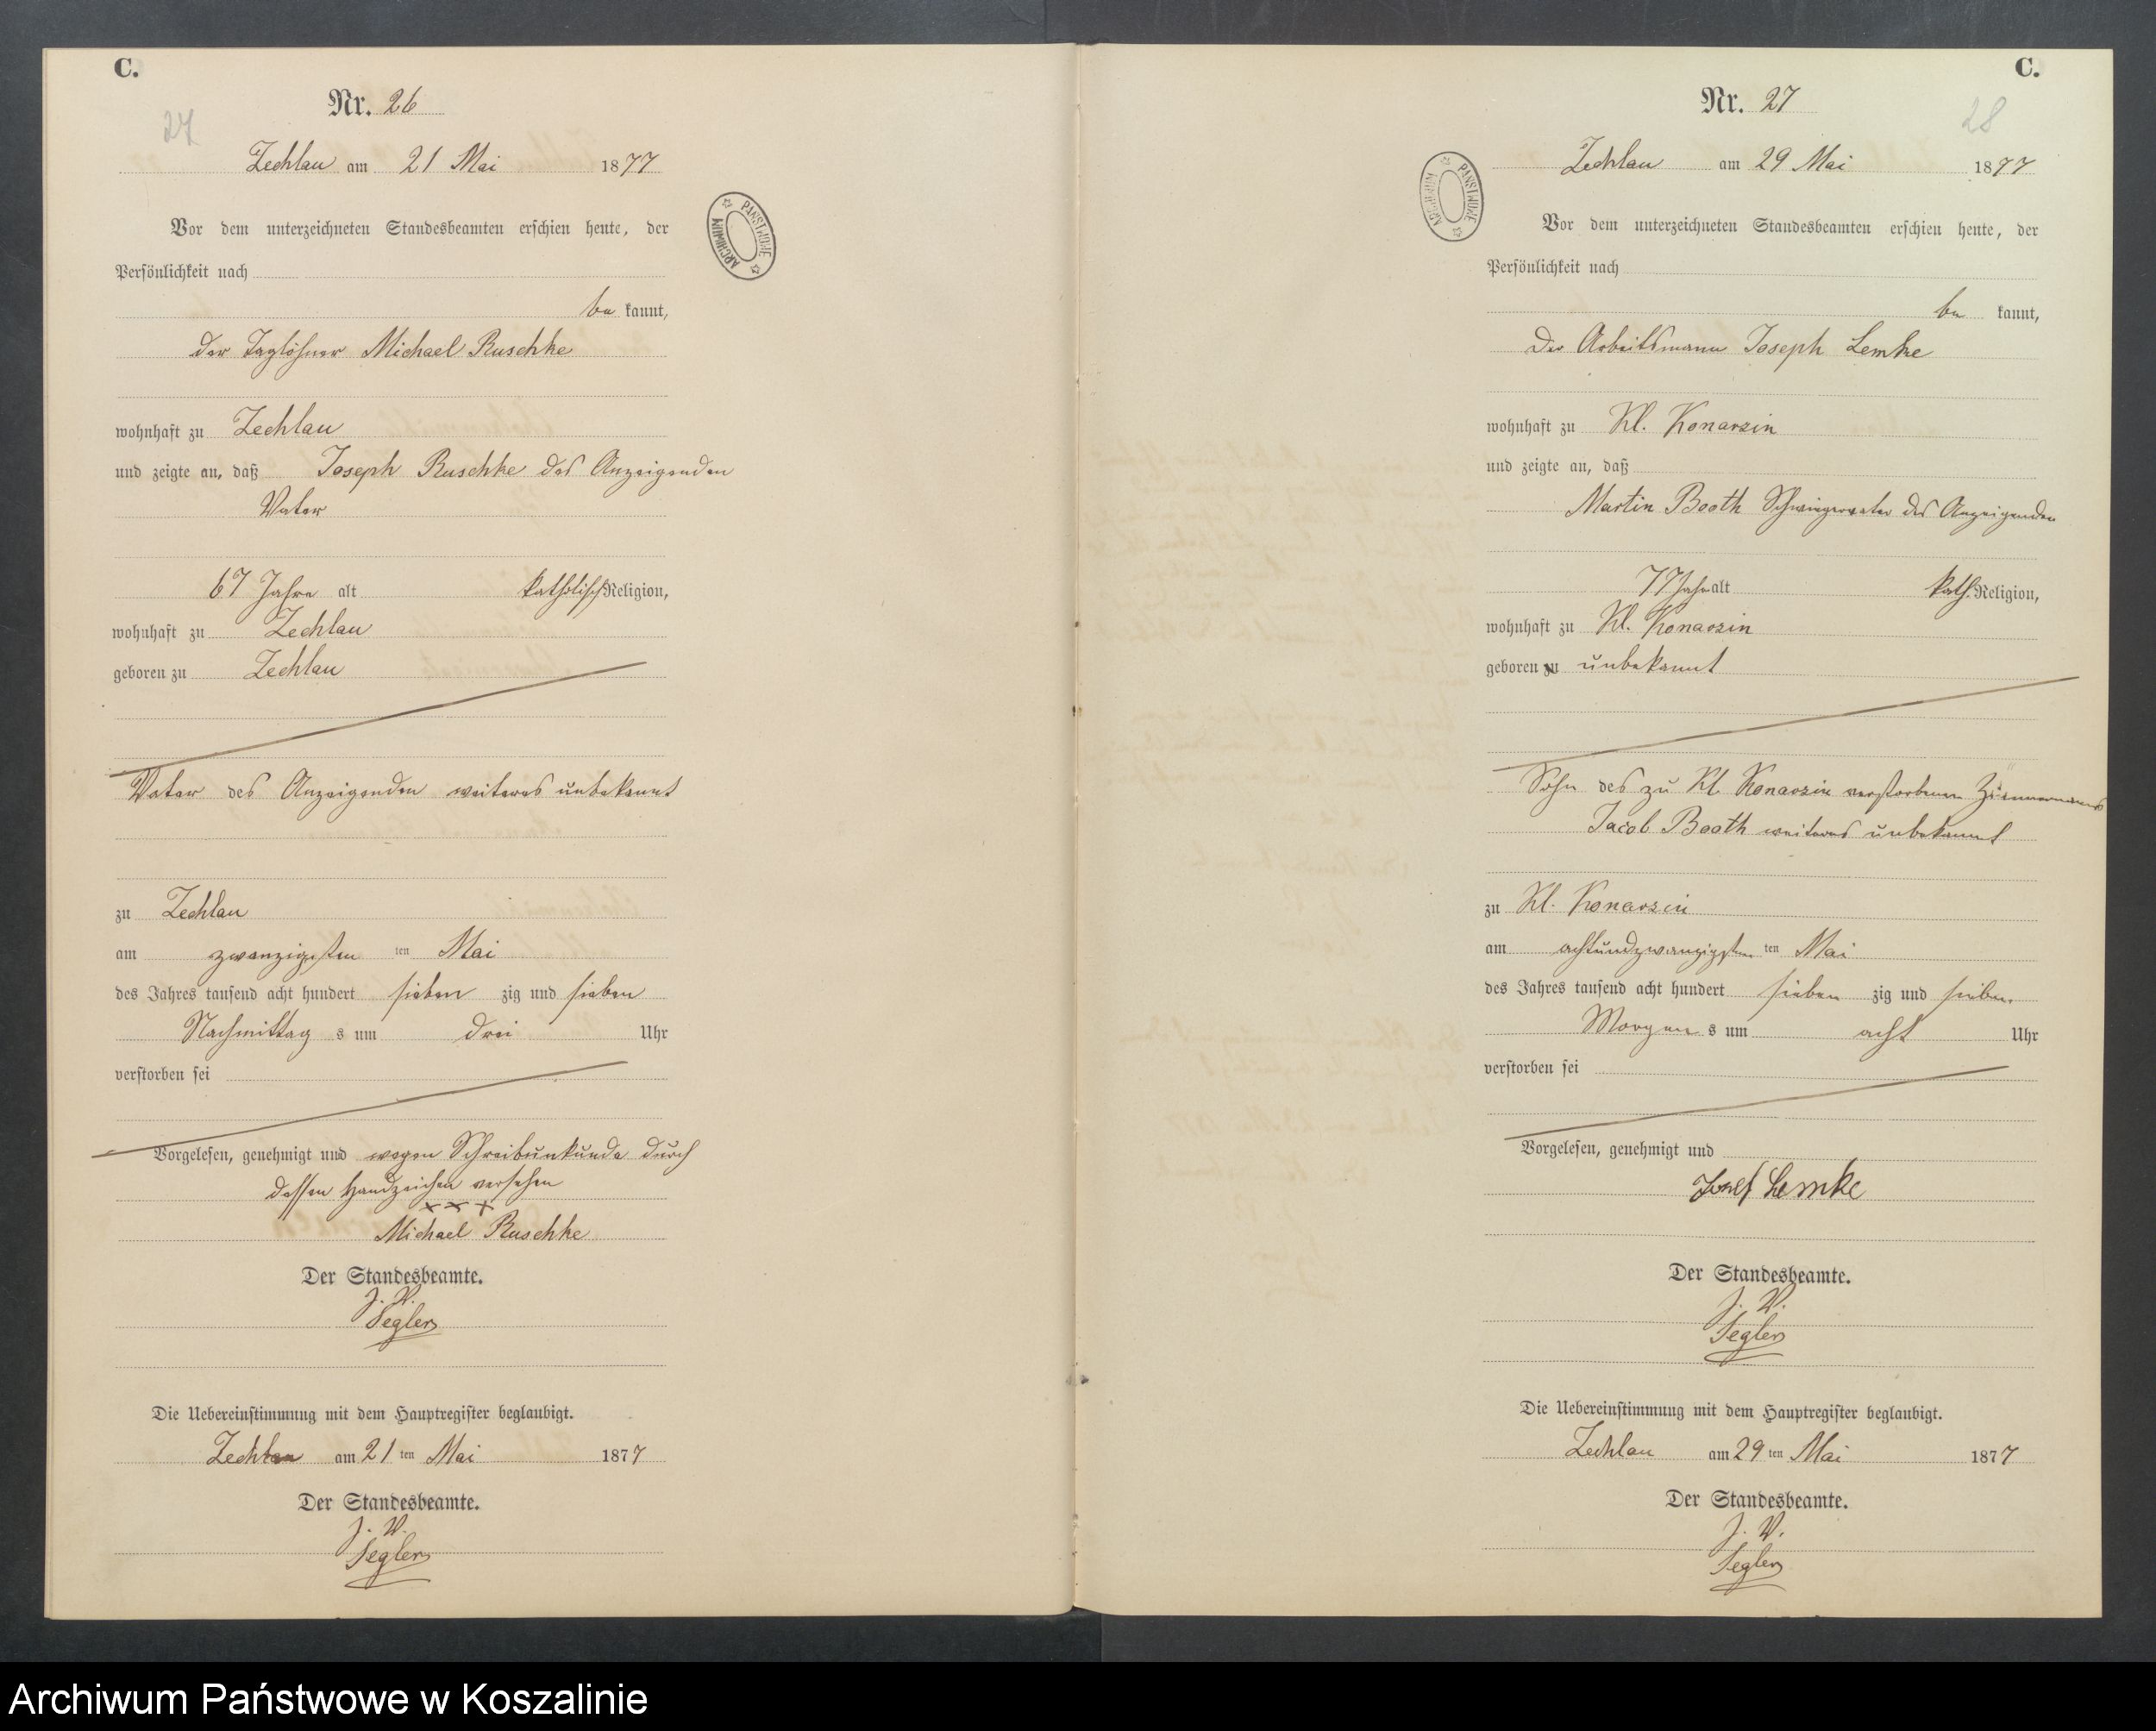 C.
Nr. 26
27
Zechlau am 21 Mai 1877
Vor dem unterzeichneten Standesbeamten erschien heute, der
Persönlichkeit nach
be kannt,
der Taglöhner Michael Ruschke
wohnhaft zu Zechlau
und zeigte an, daß Joseph Ruschke des Anzeigenden
Vater
67 Jahre alt katholisch Religion,
wohnhaft zu Zechlau
geboren zu Zechlau
Vater des Anzeigenden weiteres unbekannt
zu Zechlau
am zwanzigsten ten Mai
des Jahres tausend acht hundert sieben zig und sieben
Nachmittag s um drei Uhr
verstorben sei
Vorgelesen, genehmigt und wegen Schreibunkunde durch
dessen Handzeichen versehen
× × ×
Michael Ruschke
Der Standesbeamte.
J. V.
Segler
Die Uebereinstimmung mit dem Hauptregister beglaubigt.
Zechlau am 21 ten Mai 1877
Der Standesbeamte.
J. V.
Segler
ARCHIWUM PAŃSTWOWE
C.
Nr. 27
28
Zechlau am 29 Mai 1877
Vor dem unterzeichneten Standesbeamten erschien heute, der
Persönlichkeit nach
be kannt,
Der Arbeitsmann Joseph Lemke
wohnhaft zu Kl. Konarzin
und zeigte an, daß
Martin Booth Schwiegervater des Anzeigenden
77 Jahr alt kath. Religion,
wohnhaft zu Kl. Konarzin
geboren zu unbekannt
Sohn des zu Kl. Konarzin verstorbenen Zimmermanns
Jacob Booth weiteres unbekannt
zu Kl. Konarzin
am achtundzwanzigsten ten Mai
des Jahres tausend acht hundert sieben zig und sieben
Morgen s um acht Uhr
verstorben sei
Vorgelesen, genehmigt und
Josef Lemke
Der Standesbeamte.
J. V.
Segler
Die Uebereinstimmung mit dem Hauptregister beglaubigt.
Zechlau am 29 ten Mai 1877
Der Standesbeamte.
J. V.
Segler
ARCHIWUM PAŃSTWOWE
Archiwum Państwowe w Koszalinie